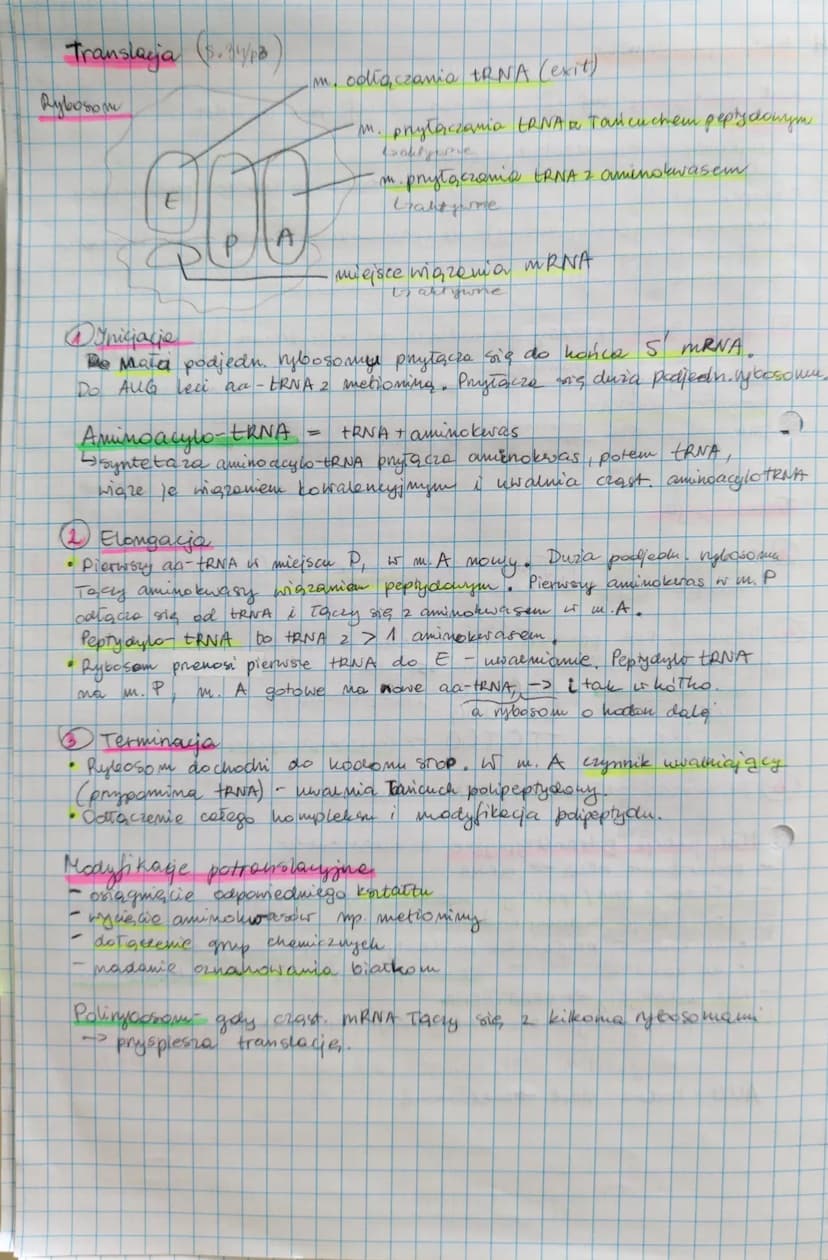 Translacja (s. 34/p3)
m. odłączania tRNA (exit)
Rybosom
m. przyłączania tRNA z łańcuchem peptydowym
↳aktywne
m. przyłączania tRNA z aminokwasem
↳aktywne
E
P
A
miejsce wiązania mRNA
↳aktywne
① Inicjacja
Mała podjedn. rybosomu przyłącza się do końca 5' mRNA.
Do AUG leci aa-tRNA z metioniną. Przyłącza się duża podjedn. rybosomu.
Aminoacylo-tRNA = tRNA + aminokwas
↳syntetaza aminoacylo-tRNA przyłącza aminokwas, potem tRNA,
wiąże je wiązaniem kowalencyjnym i uwalnia cząst. aminoacylotRNA
② Elongacja
• Pierwszy aa-tRNA w miejscu P, w m. A nowy. Duża podjedn. rybosomu
łączy aminokwasy wiązaniem peptydowym. Pierwszy aminokwas w m. P
odłącza się od tRNA i łączy się z aminokwasem w m. A.
Peptydylo-tRNA to tRNA z > 1 aminokwasem.
• Rybosom przenosi pierwsze tRNA do E - uwalnianie. Peptydylo tRNA
na m. P, m. A gotowe na nowe aa-tRNA, → i tak w kółko.
a rybosom o kodon dalej
③ Terminacja
• Rybosom dochodzi do kodonu stop. W m. A czynnik uwalniający
(przypomina tRNA) - uwalnia łańcuch polipeptydowy.
• Odłączenie całego kompleksu i modyfikacja polipeptydu.
Modyfikacje potranslacyjne
- osiągnięcie odpowiedniego kształtu
- wycięcie aminokwasów np. metioniny
- dołączenie grup chemicznych
- nadanie oznakowania białkom
Polirybosom - gdy cząst. mRNA łączy się z kilkoma rybosomami
→ przyspiesza translację.